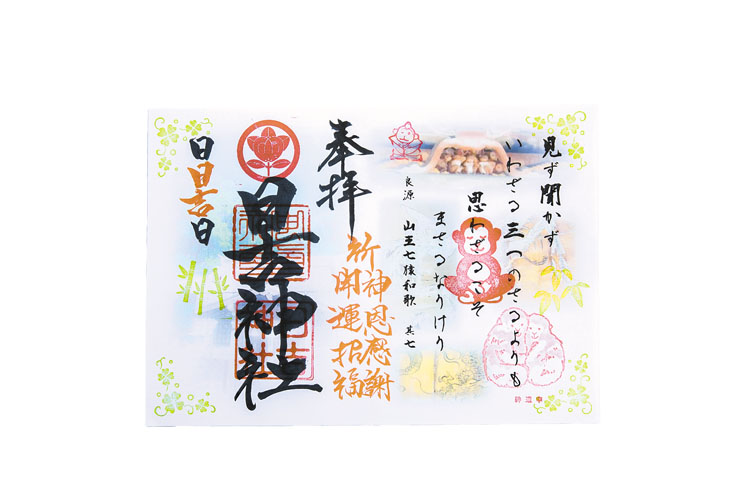 見ず聞かず
いわざる三つのさるよりも
思わざるこそ
まさるなりけり
良源 山王七猿和歌 其七
奉拝
神恩感謝
祈開運招福
日吉神社
日日吉日